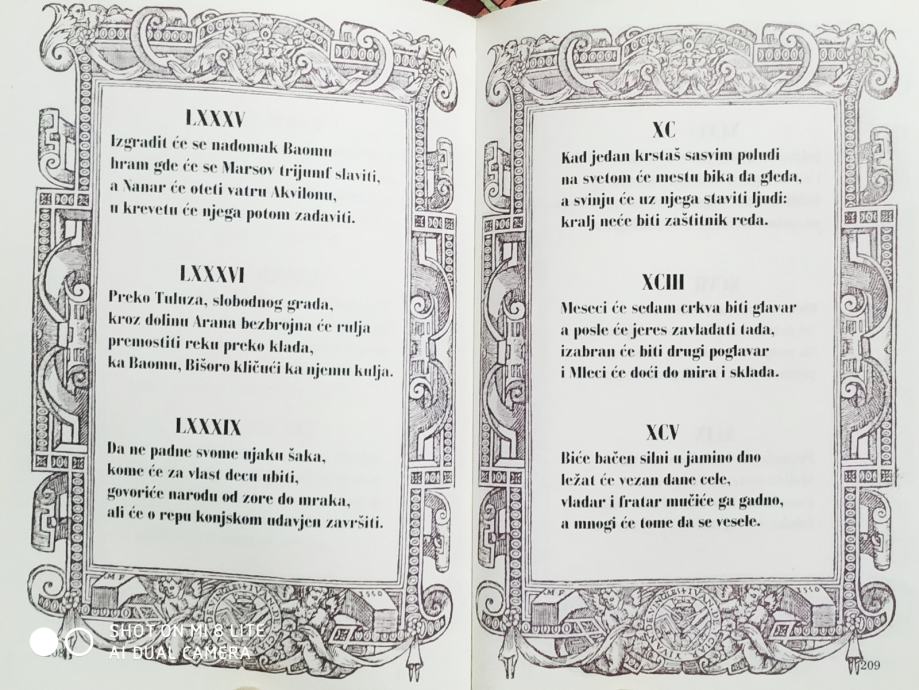 LXXXV
Izgradit će se nadomak Baomu
hram gde će se Marsov trijumf slaviti,
a Nanar će oteti vatru Akvilonu,
u krevetu će njega potom zadaviti.
LXXXVI
Preko Tuluza, slobodnog grada,
kroz dolinu Arana bezbrojna će rulja
premostiti reku preko klada,
ka Baomu, Bišoro kličući ka njemu kulja.
LXXXIX
Da ne padne svome ujaku šaka,
kome će za vlast decu ubiti,
govoriće narodu od zore do mraka,
ali će o repu konjskom udavjen završiti.
XC
Kad jedan krstaš sasvim poludi
na svetom će mestu bika da gleda,
a svinju će uz njega staviti ljudi:
kralj neće biti zaštitnik reda.
XCIII
Meseci će sedam crkva biti glavar
a posle će jeres zavladati tada,
izabran će biti drugi poglavar
i Mleci će doći do mira i sklada.
XCV
Biće bačen silni u jamino dno
ležat će vezan dane cele,
vladar i fratar mučiće ga gadno,
a mnogi će tome da se vesele.
209
SHOT ON MI 8 LITE
AI DUAL CAMERA